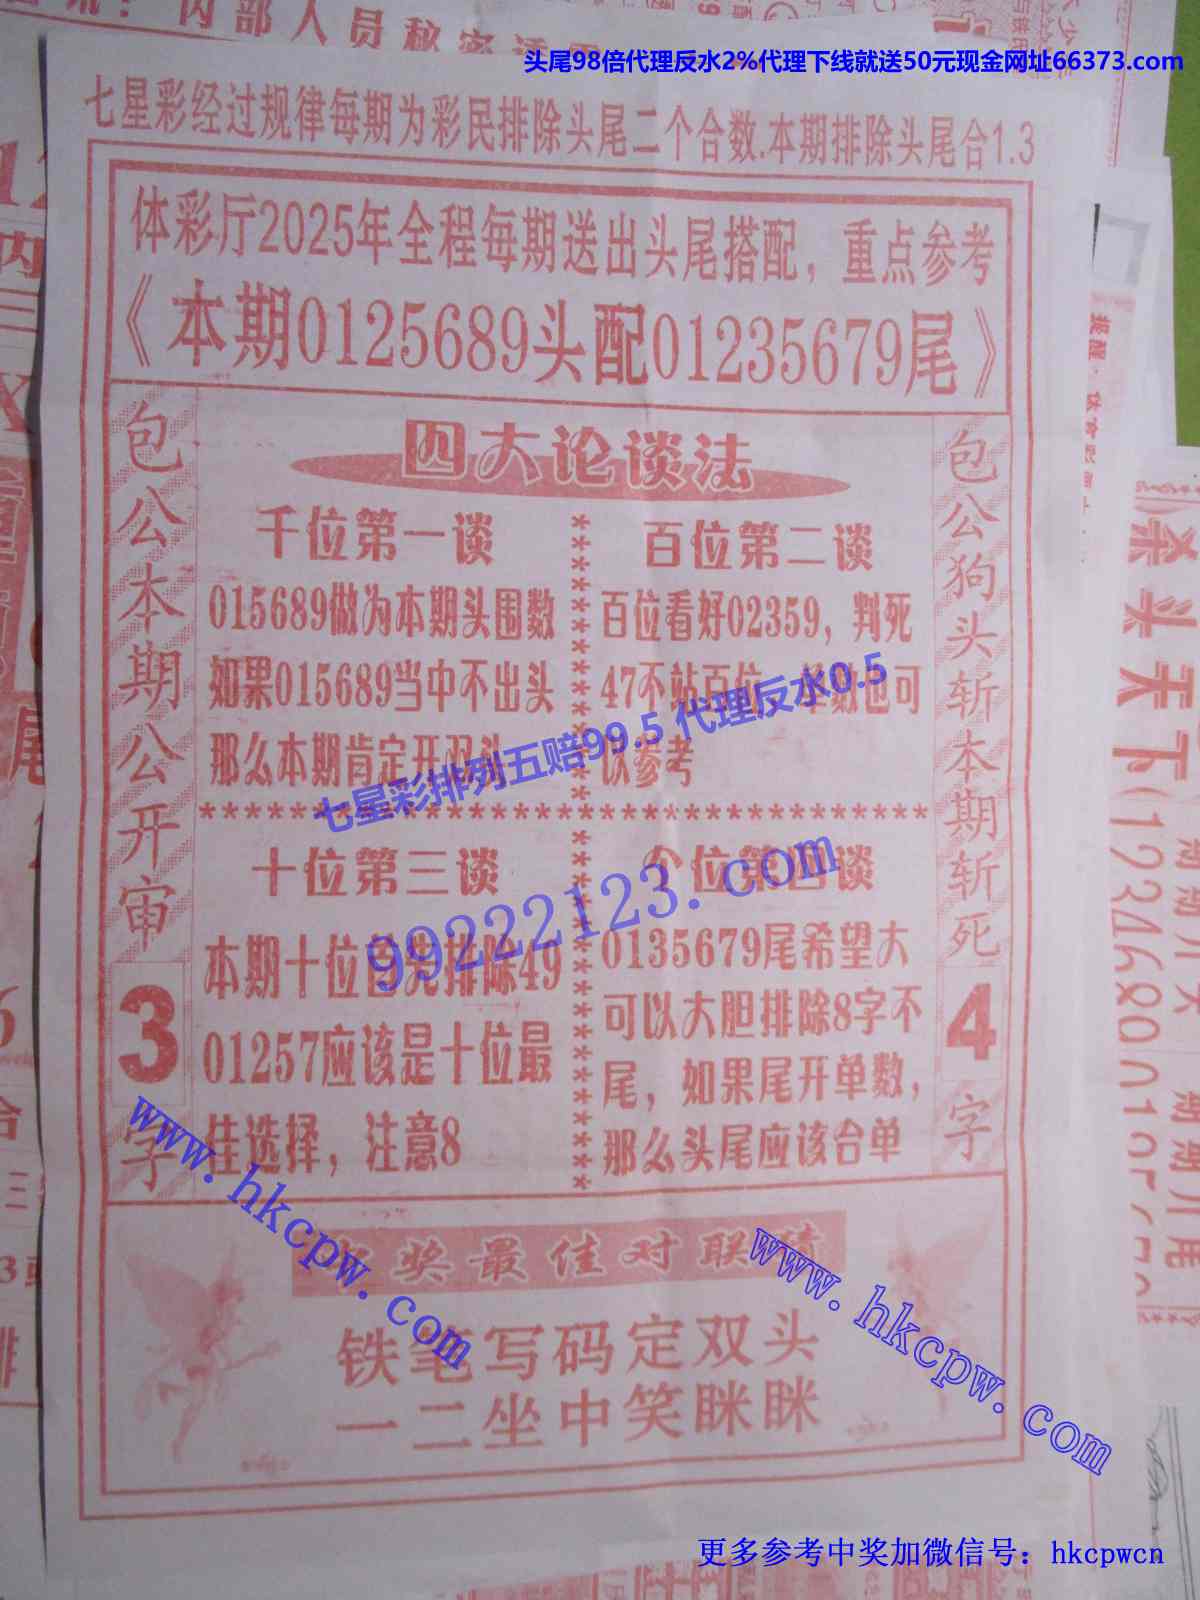 内部人员秘密
头尾98倍代理反水2%代理下线就送50元现金网址66373.com
七星彩经过规律每期为彩民排除头尾二个合数.本期排除头尾合1.3
体彩厅2025年全程每期送出头尾搭配，重点参考
《本期0125689头配01235679尾》
包公本期公开审
3
字
四大论谈法
千位第一谈
015689做为本期头围数
如果015689当中不出头
那么本期肯定开双头
百位第二谈
百位看好02359，判死
47不站百位 单数也可
以参考
七星彩排列五赔99.5 代理反水0.5
十位第三谈
本期十位首先排除49
01257应该是十位最
佳选择，注意8
个位第四谈
0135679尾希望大
可以大胆排除8字不
尾，如果尾开单数，
那么头尾应该合单
99222123.com
包公狗头斩本期斩死
4
字
www.hkcpw.com
奖最佳对联
www.hkcpw.com
铁笔写码定双头
一二坐中笑眯眯
更多参考中奖加微信号：hkcpwcn
杀头天下